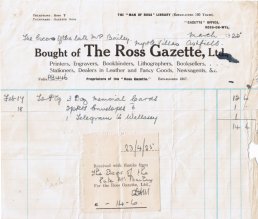 TELEPHONE: ROSS 7
TELEGRAMS: GAZETTE ROSS
THE "MAN OF ROSS" LIBRARY (ESTABLISHED 100 YEARS)
"GAZETTE" OFFICE,
ROSS-ON-WYE,
March 1925
The Exors of the late Mr P Bailey,
Bought of The Ross Gazette, Ltd.
Printers, Engravers, Bookbinders, Lithographers, Booksellers,
Stationers, Dealers in Leather and Fancy Goods, Newsagents, &c.
Proprietors of the "Ross Gazette". ESTABLISHED 1867.
Folio
Feb 17 To Ptg 2 Doz Memorial Cards
18 Envelopes to
1 Telegram to Wellesey
23/4/25
Received with thanks from
The Exors of the
late Mr
For the Ross Gazette, Ltd.,
£ -14-6